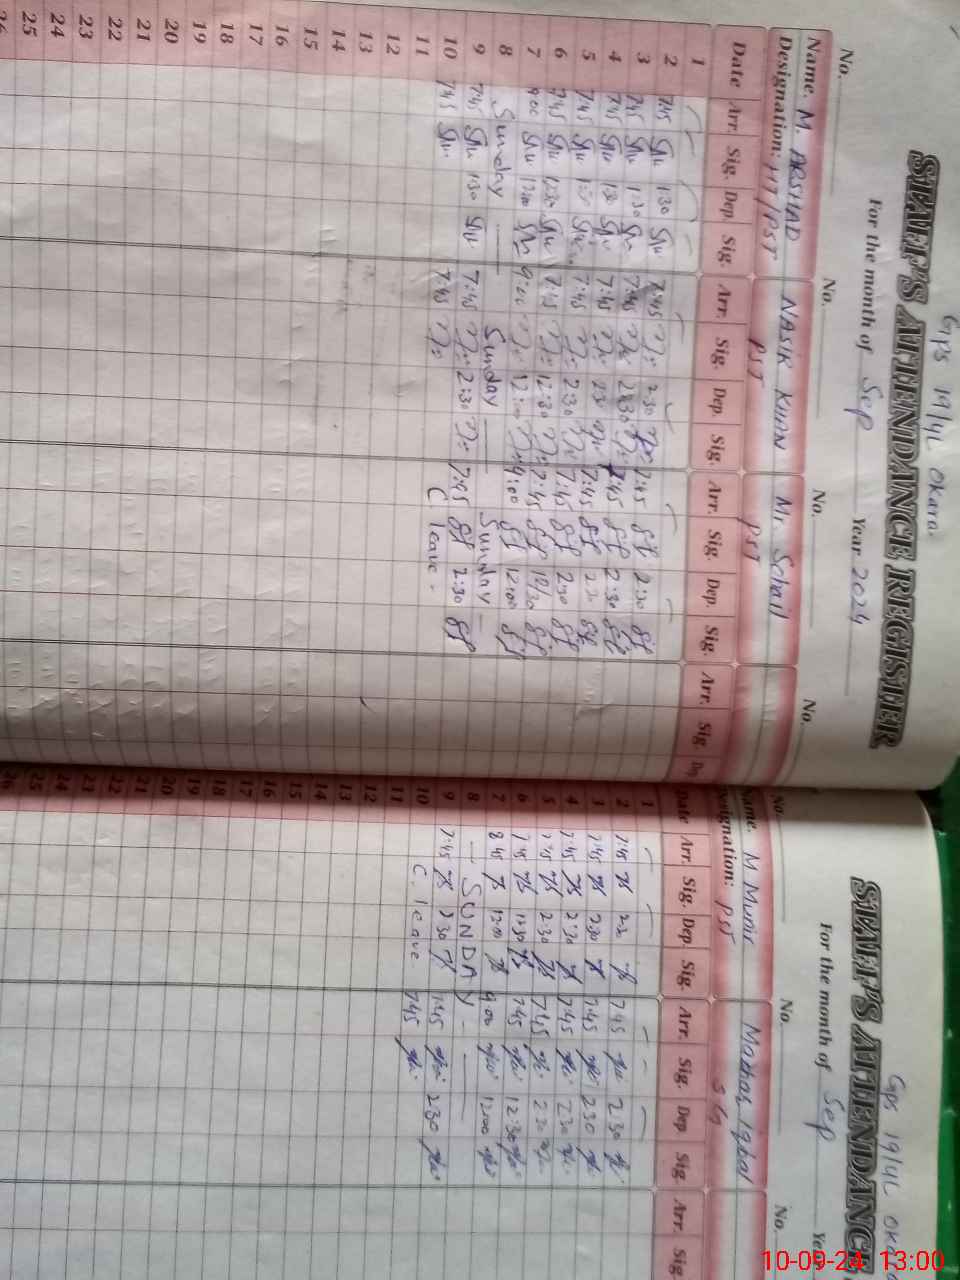 GPS 19/4L Okara.
STAFF'S ATTENDANCE REGISTER
For the month of Sep Year 2024
No. No. No. No.
Name. M. ARSHAD NASIR KHAN Mr. Sohail
Designation: HT/PST PST PST
Date Arr. Sig. Dep. Sig. Arr. Sig. Dep. Sig. Arr. Sig. Dep. Sig. Arr. Sig. Dep
1
2 7:45 1:30 7:45 2:30 7:45 2:30
3 7:45 1:30 7:45 2:30 7:45 2:30
4 7:45 1:30 7:45 2:30 7:45 2:30
5 7:45 7:45 2:30 7:45 2:30
6 7:45 12:30 7:45 12:30 7:45 12/30
7 9:00 12:00 9:00 12:00 9:00 12:00
8 Sunday Sunday Sunday
9 7:45 1:30 7:45 2:30 7:45 2:30
10 7:45 7:45 C leave.
11
12
13
14
15
16
17
18
19
20
21
22
23
24
25
26
GPS 19/4L Oka
STAFF'S ATTENDANCE
For the month of Sep Ye
No. No. No.
Name. M Munir Mazhar Iqbal
Designation: PST
Date Arr. Sig. Dep Sig. Arr. Sig. Dep Sig. Arr. Sig
1
2 7:45 7:45 2:30
3 7:45 2:30 7:45 2:30
4 7:45 2:30 7:45 2:30
5 7:45 2:30 7:45 2:30
6 7:45 12:30 7:45 12:30
7 8:45 12:00 9:00 12:00
8 SUNDAY
9 7:45 2:30 7:45 2:30
10 C. leave 7:45
11
12
13
14
15
16
17
18
19
20
21
22
23
24
25
26
10-09-24 13:00